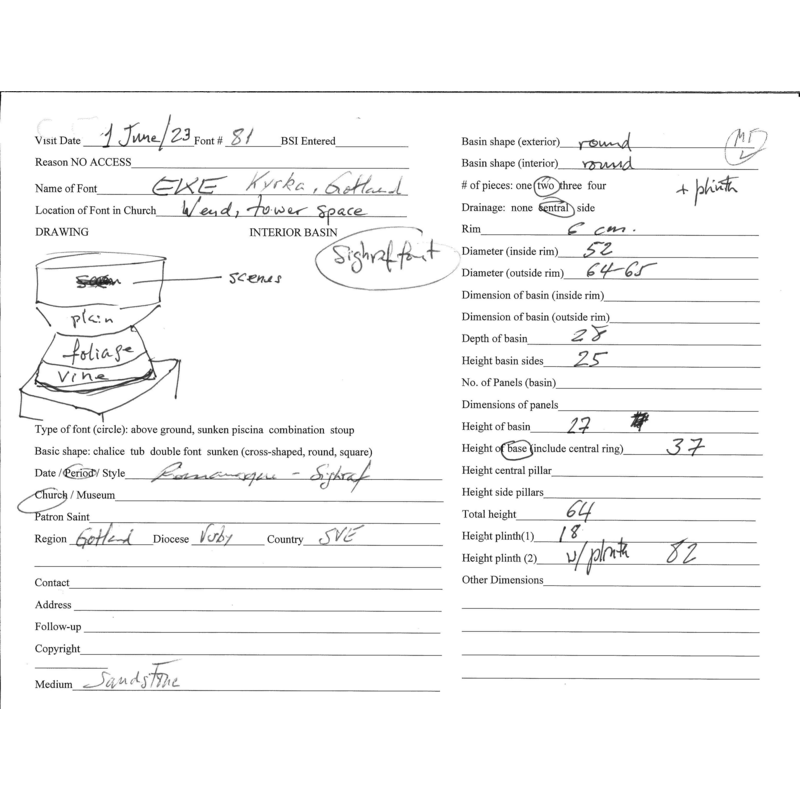 Visit Date 1 June/23 Font # 81 BSI Entered
Reason NO ACCESS
Name of Font EKE Kyrka, Gotland
Location of Font in Church W end, tower space
DRAWING INTERIOR BASIN
Sighraf font
scenes
plain
foliage
vine
Type of font (circle): above ground, sunken piscina combination stoup
Basic shape: chalice tub double font sunken (cross-shaped, round, square)
Date / Period / Style Romanesque - Sighraf
Church / Museum
Patron Saint
Region Gotland Diocese Visby Country SVE
Contact
Address
Follow-up
Copyright
Medium Sandstone
Basin shape (exterior) round
MT
Basin shape (interior) round
# of pieces: one two three four + plinth
Drainage: none central side
Rim 6 cm.
Diameter (inside rim) 52
Diameter (outside rim) 64-65
Dimension of basin (inside rim)
Dimension of basin (outside rim)
Depth of basin 28
Height basin sides 25
No. of Panels (basin)
Dimensions of panels
Height of basin 27
Height of base (include central ring) 37
Height central pillar
Height side pillars
Total height 64
Height plinth(1) 18
Height plinth (2) w/plinth 82
Other Dimensions